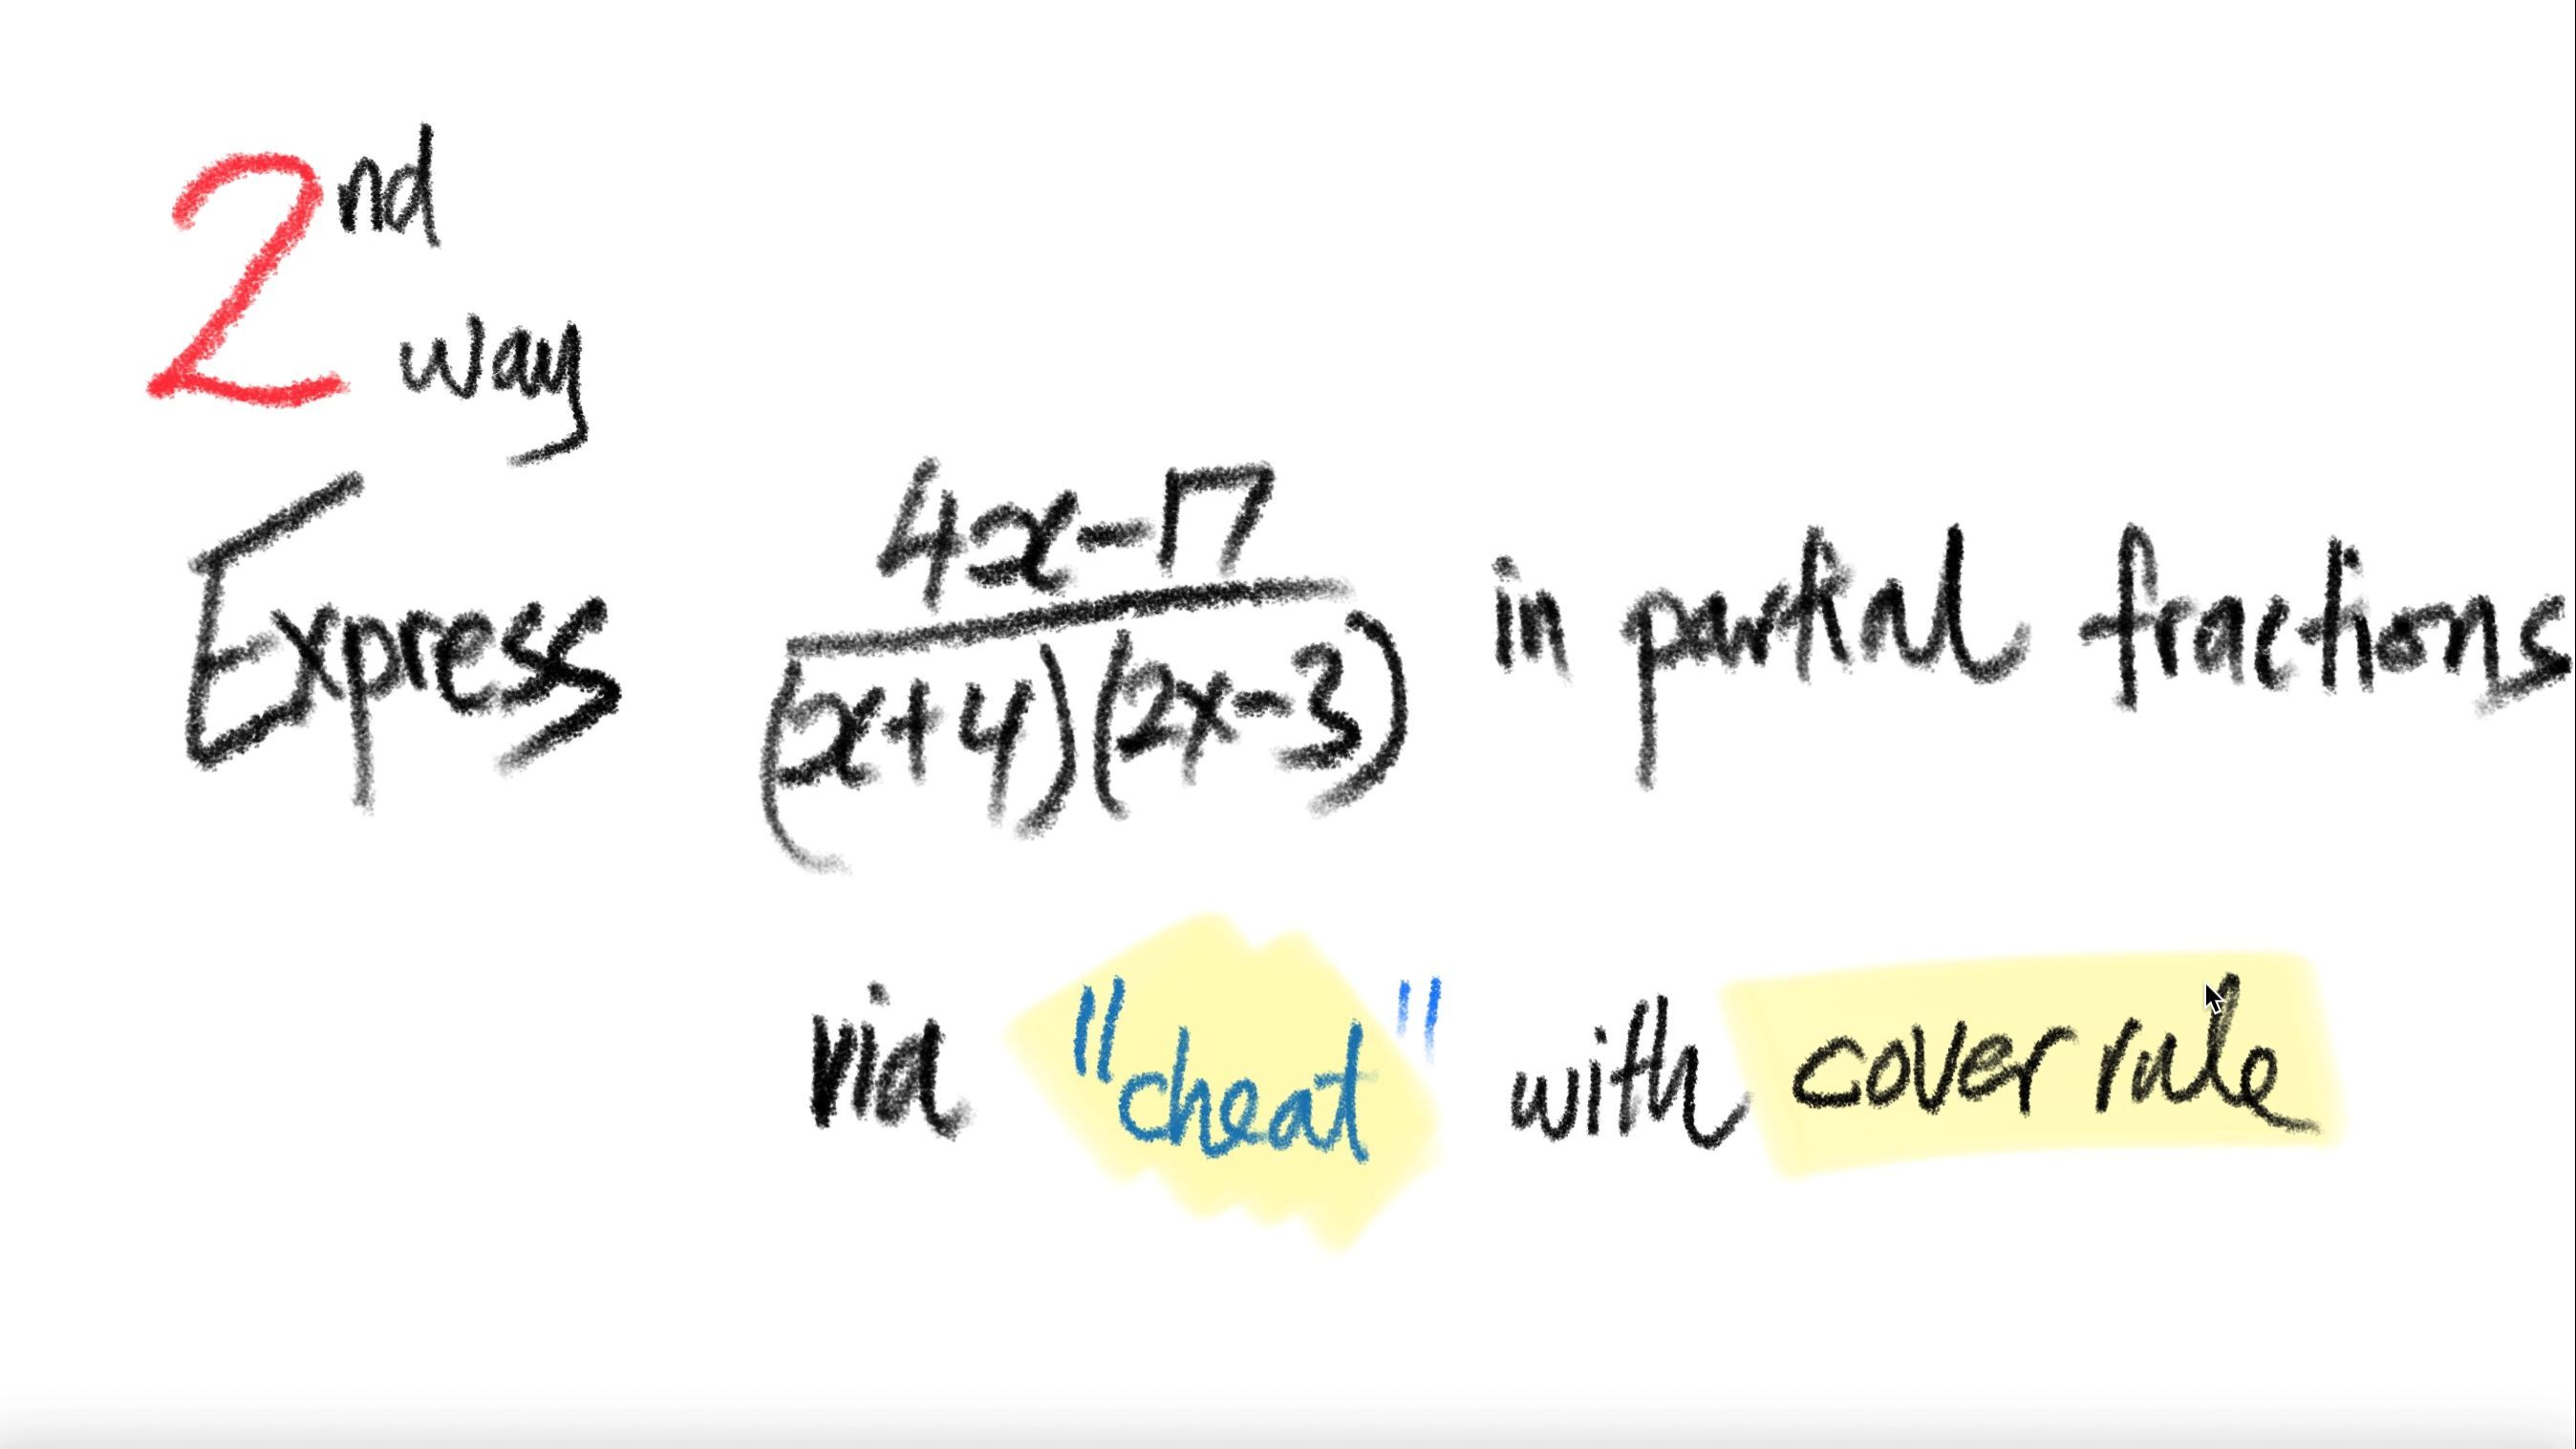 2nd
way
Express 4x-17 / (x+4)(2x-3) in partial fractions
via "cheat" with cover rule